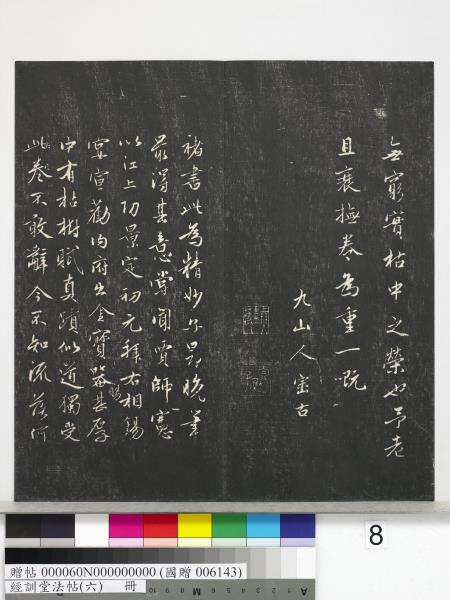 無窮實枯中之榮也予老
且衰撫卷為重一嘅
九山人宗古
褚書此為精妙尔是晚筆
最得其意嘗聞賈師憲
以江上功景定初元拜右相錫
宴宣勸內府出金寶器甚厚
賜
中有枯樹賦真蹟似道獨受
此卷不敢辭今不知流落何
8
贈帖 000060N000000000 (國贈 006143)
經訓堂法帖(六) 冊